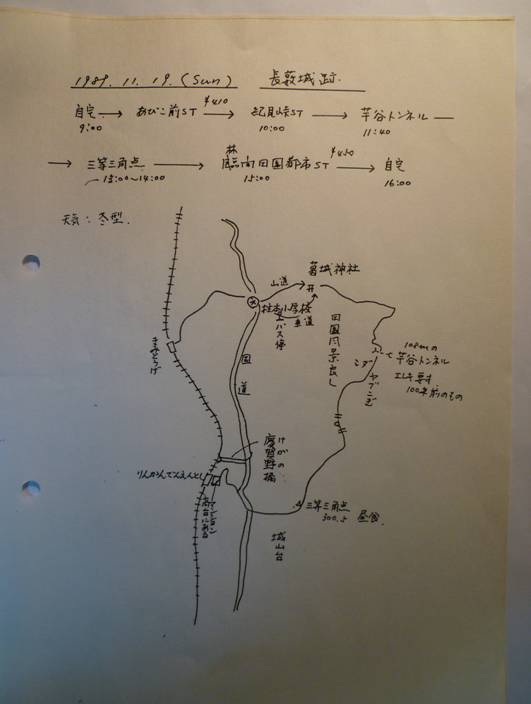 1989. 11. 19. (Sun)  長薮城跡.
自宅 → あびこ前ST ¥410 → 紀見峠ST → 芋谷トンネル →
9:00 10:00 11:40
→ 三等三角点 → 林間田園都市ST ¥450 → 自宅
13:00〜14:00 15:00 16:00
天気: 冬型.
葛城神社
山道
柱本小学校
バス停
車道
田園風景良し
国道
きみとうげ
108mの
芋谷トンネル
エレキ要す
100年前のもの
コダ
ヤブこぎ
けがの
慶賀野橋
りんかんでんえんとし
マンション
高台に新台
三等三角点
300.5 昼食
城山台